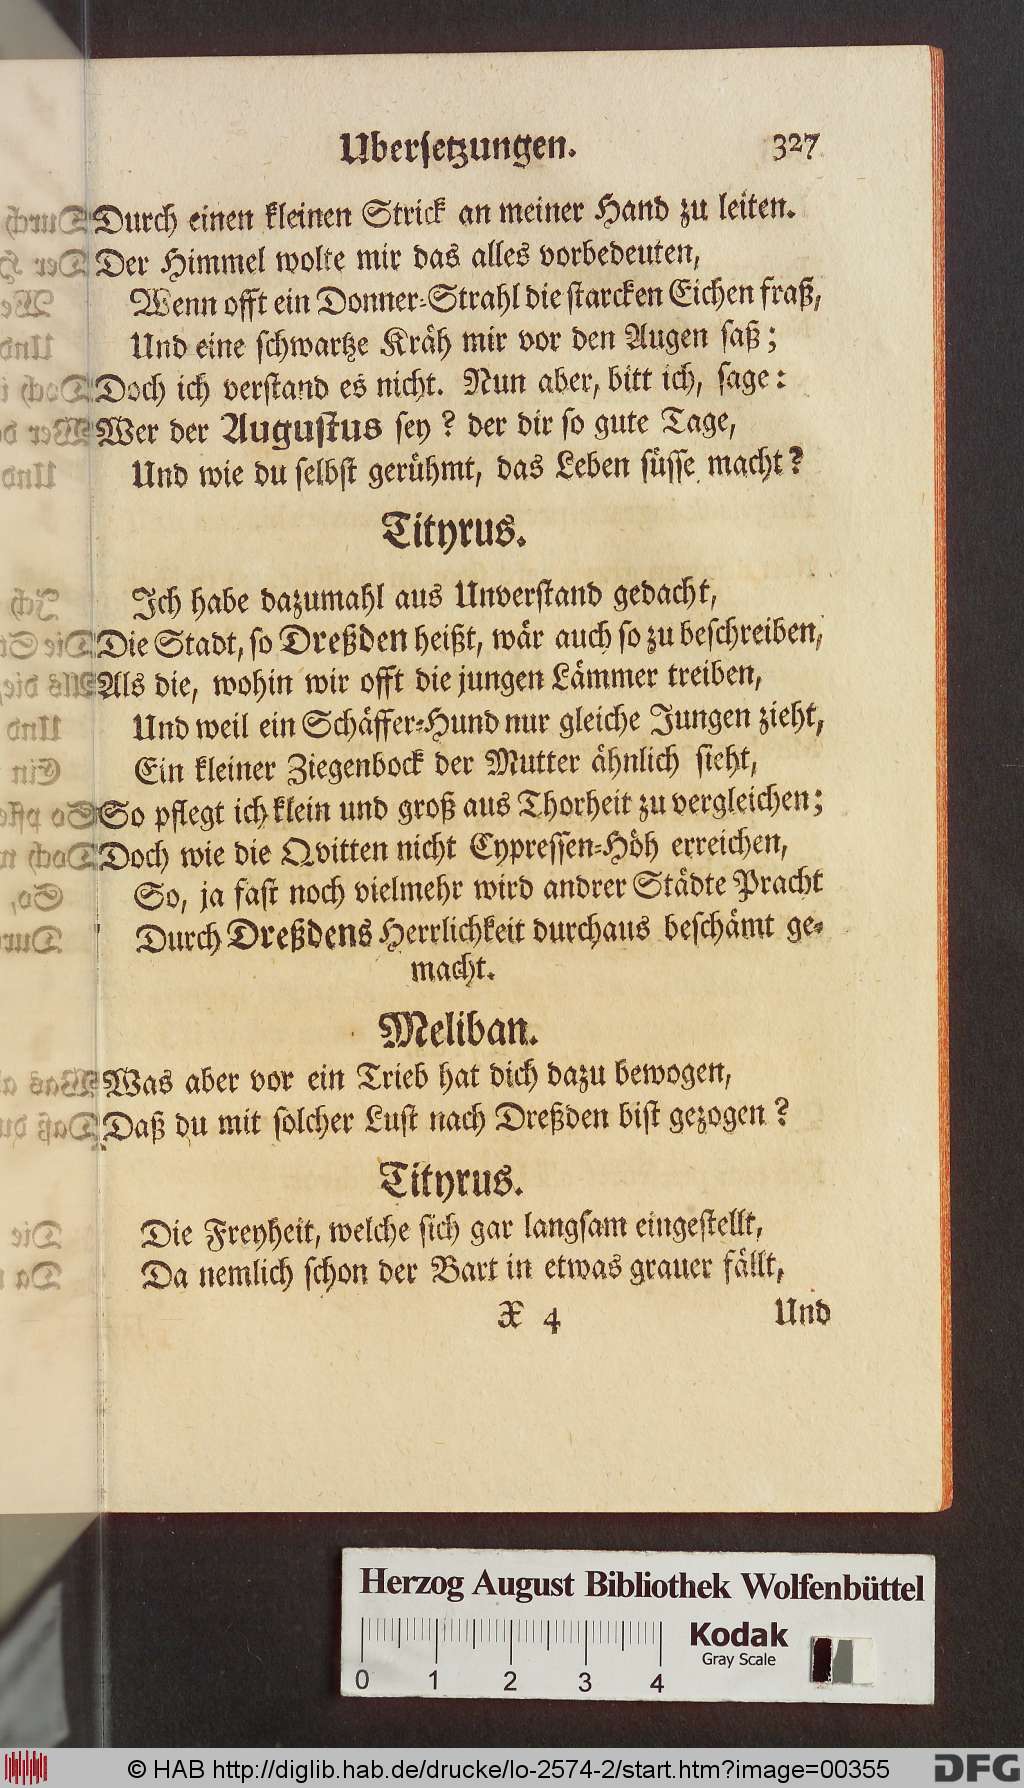 Ubersetzungen. 327
Durch einen kleinen Strick an meiner Hand zu leiten.
Der Himmel wolte mir das alles vorbedeuten,
Wenn offt ein Donner-Strahl die starcken Eichen fraß,
Und eine schwartze Kräh mir vor den Augen saß;
Doch ich verstand es nicht. Nun aber, bitt ich, sage:
Wer der Augustus sey? der dir so gute Tage,
Und wie du selbst gerühmt, das Leben süsse macht?
Tityrus.
Ich habe dazumahl aus Unverstand gedacht,
Die Stadt, so Dreßden heißt, wär auch so zu beschreiben,
Als die, wohin wir offt die jungen Lämmer treiben,
Und weil ein Schäffer-Hund nur gleiche Jungen zieht,
Ein kleiner Ziegenbock der Mutter ähnlich sieht,
So pflegt ich klein und groß aus Thorheit zu vergleichen;
Doch wie die Qvitten nicht Cypressen-Höh erreichen,
So, ja fast noch vielmehr wird andrer Städte Pracht
Durch Dreßdens Herrlichkeit durchaus beschämt ge-
macht.
Meliban.
Was aber vor ein Trieb hat dich dazu bewogen,
Daß du mit solcher Lust nach Dreßden bist gezogen?
Tityrus.
Die Freyheit, welche sich gar langsam eingestellt,
Da nemlich schon der Bart in etwas grauer fällt,
X 4 Und
Herzog August Bibliothek Wolfenbüttel
Kodak
Gray Scale
0 1 2 3 4
© HAB http://diglib.hab.de/drucke/lo-2574-2/start.htm?image=00355
DFG